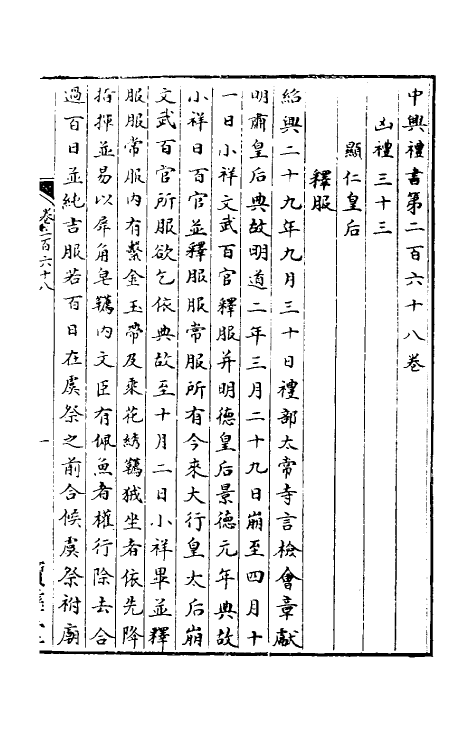 中興禮書第二百六十八卷
凶禮三十三
顯仁皇后
釋服
紹興二十九年九月三十日禮部太常寺言檢會章獻
明肅皇后典故明道二年三月二十九日崩至四月十
一日小祥文武百官釋服并明德皇后景德元年典故
小祥日百官並釋服服常服所有今來大行皇太后崩
文武百官所服欲乞依典故至十月二日小祥畢並釋
服服常服內有繫金玉帶及乘花綉韉狨坐者依先降
指揮並易以犀角皂韉內文臣有佩魚者權行除去合
過百日並純吉服若百日在虞祭之前合候虞祭祔廟
卷二百六十八
一